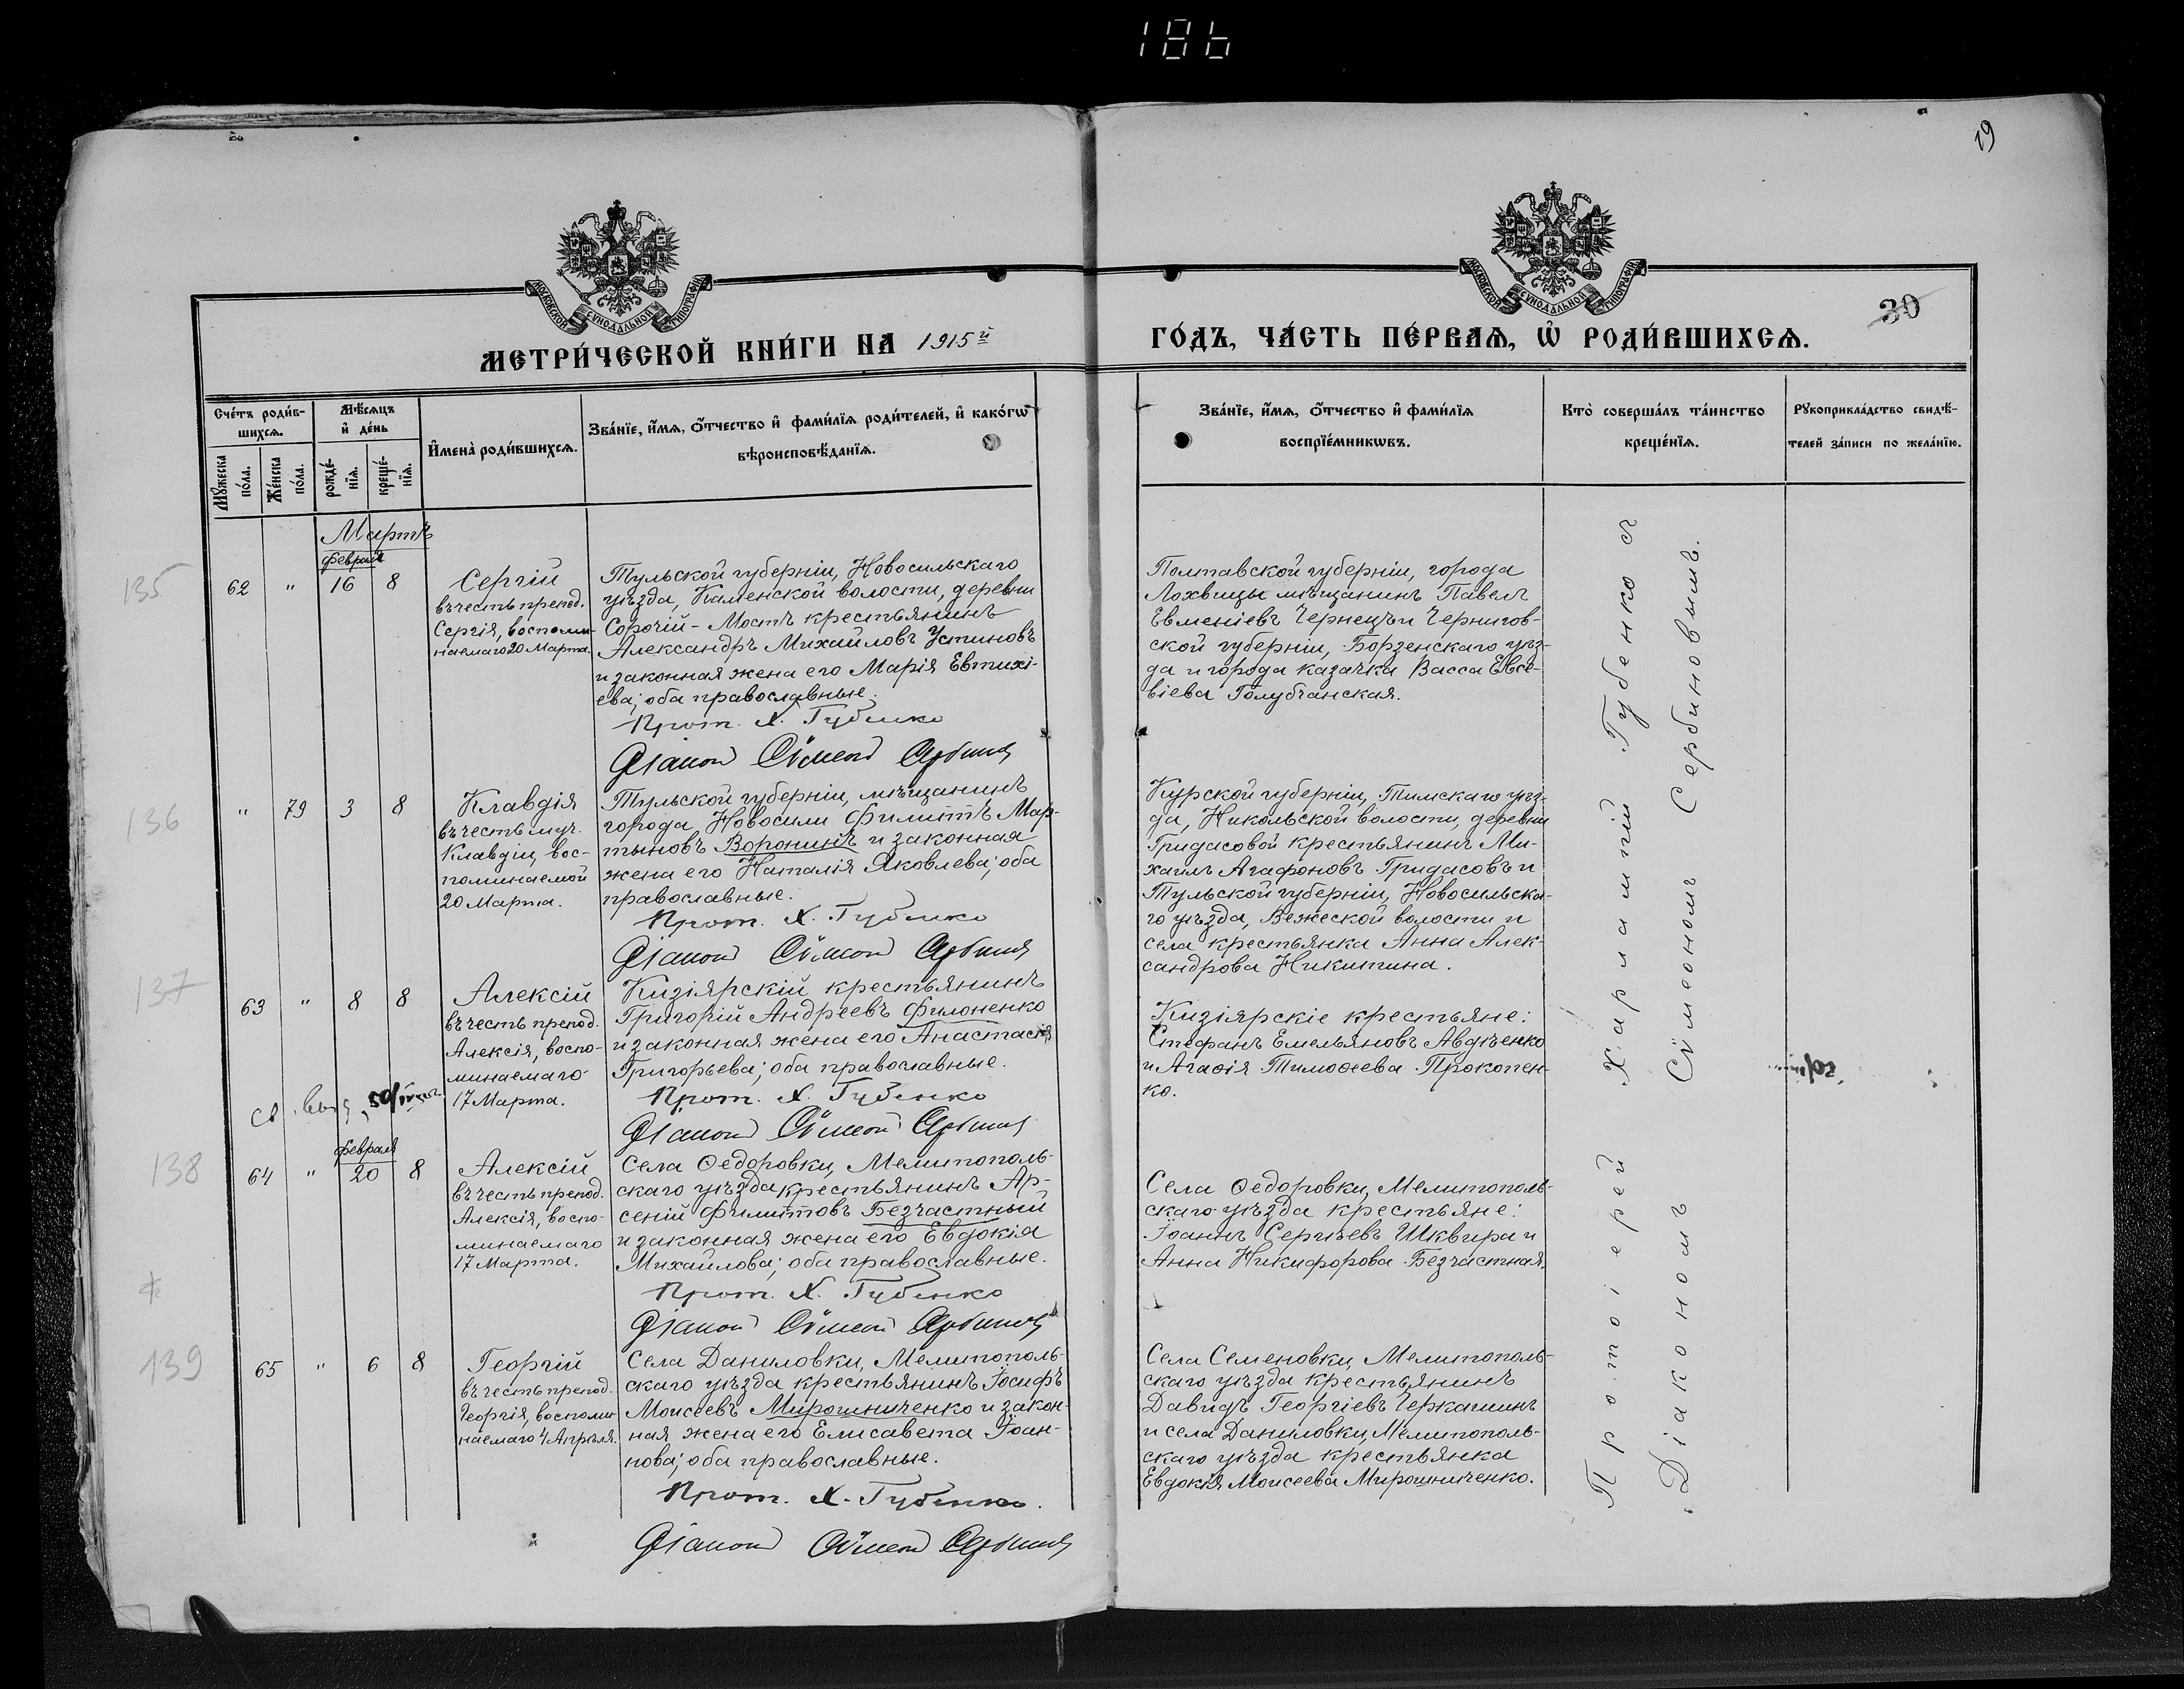 186
19
30
МОСКОВСКОЙ СѴНОДАЛЬНОЙ ТИПОГРАФІИ
МОСКОВСКОЙ СѴНОДАЛЬНОЙ ТИПОГРАФІИ
МЕТРИ́ЧЕСКОЙ КНИ́ГИ НА 1915й
ГО́ДЪ, ЧА́СТЬ ПЕ́РВАѦ, Ѡ҆ РОДИ́ВШИХСѦ.
Сче́тъ роди́в-
шихсѧ.
Мꙋ́жеска по́ла.
Же́нска по́ла.
Мѣ́сѧцъ
и҆ де́нь
рожде́-
нїѧ.
креще́-
нїѧ.
И҆мена̀ роди́вшихсѧ.
Зва́нїе, и҆́мѧ, ѻ҆́тчество и҆ фами́лїѧ роди́телей, и҆ како́гѡ
вѣроисповѣ́данїѧ.
Зва́нїе, и҆́мѧ, ѻ҆́тчество и҆ фами́лїѧ
воспрїе́мникѡвъ.
Кто̀ соверша́лъ та́инство
креще́нїѧ.
Рꙋкоприкла́дство свидѣ́-
телей за́писи по жела́нїю.
Мартъ
февраля
135
62 " 16 8
Сергій
въ честь препод.
Сергія, воспоми-
наемаго 20 Марта.
Тульской губерніи, Новосильскаго
уѣзда, Каменской волости, деревни
Сорочій-Мостъ крестьянинъ
Александръ Михаиловъ Устиновъ
и законная жена его Марія Евтихі-
ева; оба православные.
Прот. Х. Губенко
Діаконъ Сѵмеонъ Сербиновъ
Полтавской губерніи, города
Лохвицы мѣщанинъ Павелъ
Евменіевъ Чернецъ и Чернигов-
ской губерніи, Борзенскаго уѣз-
да и города казачка Васса Евсе-
віева Голубчанская.
136
" 79 3 8
Клавдія
въ честь муч.
Клавдіи, вос-
поминаемой
20 Марта.
Тульской губерніи, мѣщанинъ
города Новосили Филиппъ Мар-
тыновъ Воронинъ и законная
жена его Наталія Яковлева; оба
православные.
Прот. Х. Губенко
Діаконъ Сѵмеонъ Сербиновъ
Курской губерніи, Тимскаго уѣз-
да, Никольской волости, деревни
Гридасовой крестьянинъ Ми-
хаилъ Агафоновъ Гридасовъ и
Тульской губерніи, Новосильска-
го уѣзда, Вежеской волости и
села крестьянка Анна Алек-
сандрова Никитина.
137
63 " 8 8
Алексій
въ честь препод.
Алексія, воспо-
минаемаго
17 Марта.
Кизіярскій крестьянинъ
Григорій Андреевъ Филоненко
и законная жена его Анастасія
Григорьева; оба православные.
Прот. Х. Губенко
Діаконъ Сѵмеонъ Сербиновъ
Кизіярскіе крестьяне:
Стефанъ Емельяновъ Авдѣенко
и Агаѳія Тимоѳеева Прокопен-
ко.
февраля
138
64 " 20 8
Алексій
въ честь препод.
Алексія, воспо-
минаемаго
17 Марта.
Села Ѳедоровки, Мелитополь-
скаго уѣзда крестьянинъ Ар-
сеній Филипповъ Безчастный
и законная жена его Евдокія
Михаилова; оба православные.
Прот. Х. Губенко
Діаконъ Сѵмеонъ Сербиновъ
Села Ѳедоровки, Мелитополь-
скаго уѣзда крестьяне:
Іоаннъ Сергіевъ Шквира и
Анна Никифорова Безчастная.
139
65 " 6 8
Георгій
въ честь препод.
Георгія, воспоми-
наемаго 4 Апрѣля.
Села Даниловки, Мелитополь-
скаго уѣзда крестьянинъ Іосифъ
Моисеевъ Мирошниченко и закон-
ная жена его Елисавета Іоан-
нова; оба православные.
Прот. Х. Губенко.
Діаконъ Сѵмеонъ Сербиновъ
Села Семеновки, Мелитополь-
скаго уѣзда крестьянинъ
Давидъ Георгіевъ Черкашинъ
и села Даниловки, Мелитополь-
скаго уѣзда крестьянка
Евдокія Моисеева Мирошниченко.
Протоіерей Харлампій Губенко съ
Діакономъ Сѵмеономъ Сербиновымъ.